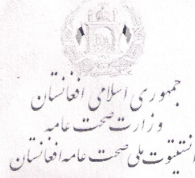 جمهوری اسلامی افغانستان
وزارت صحت عامه
انستیتوت ملی صحت عامه افغانستان